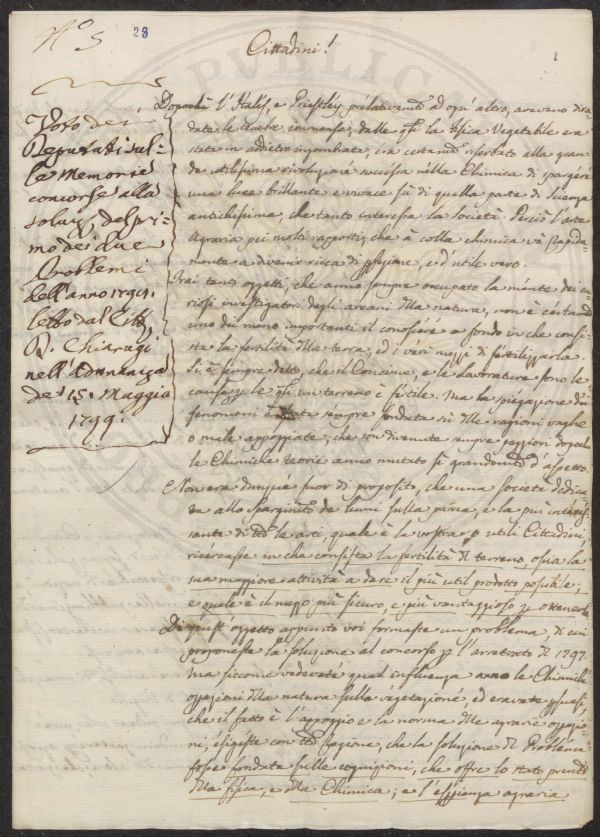 N.º 5
28
1
Cittadini!
Voto dei
Deputati sul-
le Memorie
concorse alla
soluz. del pri-
mo dei due
Problemi
dell'anno 1797.
letto dal Citt.
D. Chiarugi
nell'Adunanza
de' 15. Maggio
1799.
Dopochè l'Hales, e Priestley prelativamte ad ogn'altro, avevano dira-
date le tenebre immense, dalle qli la fisica Vegetabile era
stata in addietro ingombrata, era certamte riserbato alla gran-
de utilissima rivoluzione successa nella Chimica di spargere
una luce brillante e vivace su di quella parte di scienza
antichissima, che tanto interessa la Società. Perciò l'arte
Agraria pei molti rapporti, che à colla chimica và rapida-
mente a divenir ricca di pfezione, e d'utile vero.
Frai tanti oggetti, che anno sempre occupato la mente dei cu-
riosi investigatori degli arcani dlla natura, non è certamte
uno dei meno importanti il conoscere a fondo in che consi-
sta la fertilità dlla terra, ed i veri mezzi di fertilizzarla.
Si è sempre detto, che il Concime, e le Lavorature sono le
cause, p le qli un terreno è fertile. Ma la spiegazione dei
fenomeni è stata sempre fondata su dlle ragioni vaghe
o male appoggiate, che son divenute sempre peggiori dopochè
le Chimiche teorie anno mutato sì grandemte d'aspetto.
Non era dunque fuor di proposito, che una Società dedica-
ta allo spargimto de lumi sulla prima, e la più interes-
sante di tte le arti, quale è la vostra, o utili Cittadini,
ricercasse in che consista la fertilità dl terreno, ossia la
sua maggiore attività a dare il più util prodotto possibile,
e quale è il mezzo più sicuro, e più vantaggioso p ottenerla.
Di quest'oggetto appunto voi formaste un problema, di cui
proponeste la soluzione al concorso p l'arretrato dl 1797.
Ma siccome vedevate qual influenza anno le Chimiche
opazioni dlla natura sulla vegetazione, ed eravate psuasi,
che il fatto è l'appoggio e la norma dlle agrarie opazio-
ni, esigeste con tta ragione, che la soluzione dl Problema
fosse fondata sulle cognizioni, che offre lo stato presnte
dlla fisica, e dlla Chimica; e l'espienza agraria